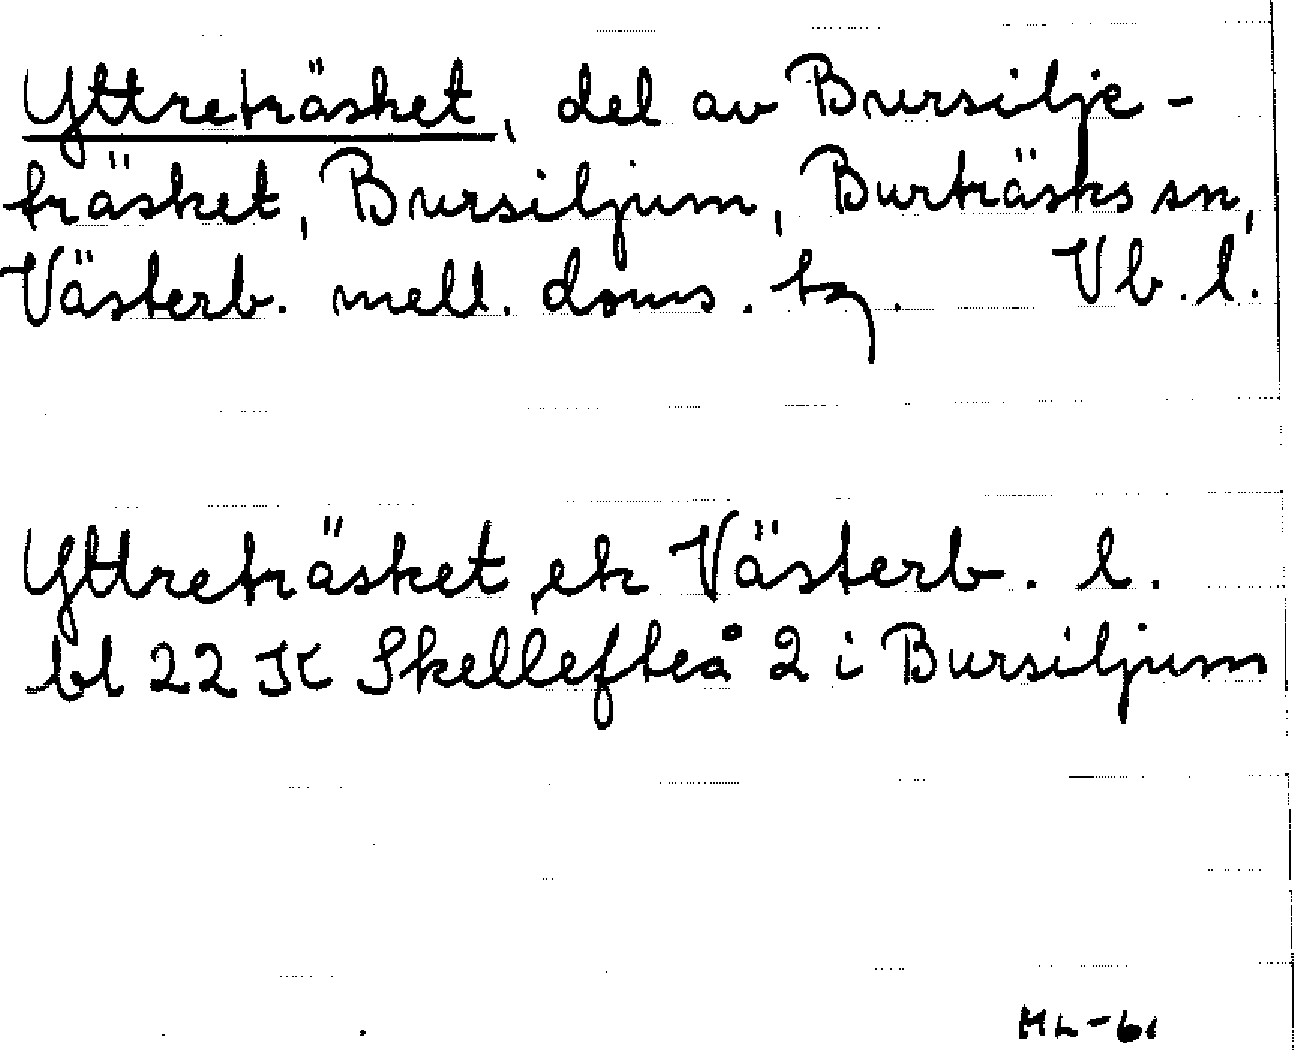 Yttreträsket, del av Bursilje-
träsket, Bursiljum, Burträsks sn,
Västerb. mell. doms. tg. Vb. l.
Yttreträsket, ek Västerb. l.
bl 22 K Skellefteå 2 i Bursiljum
ML-61